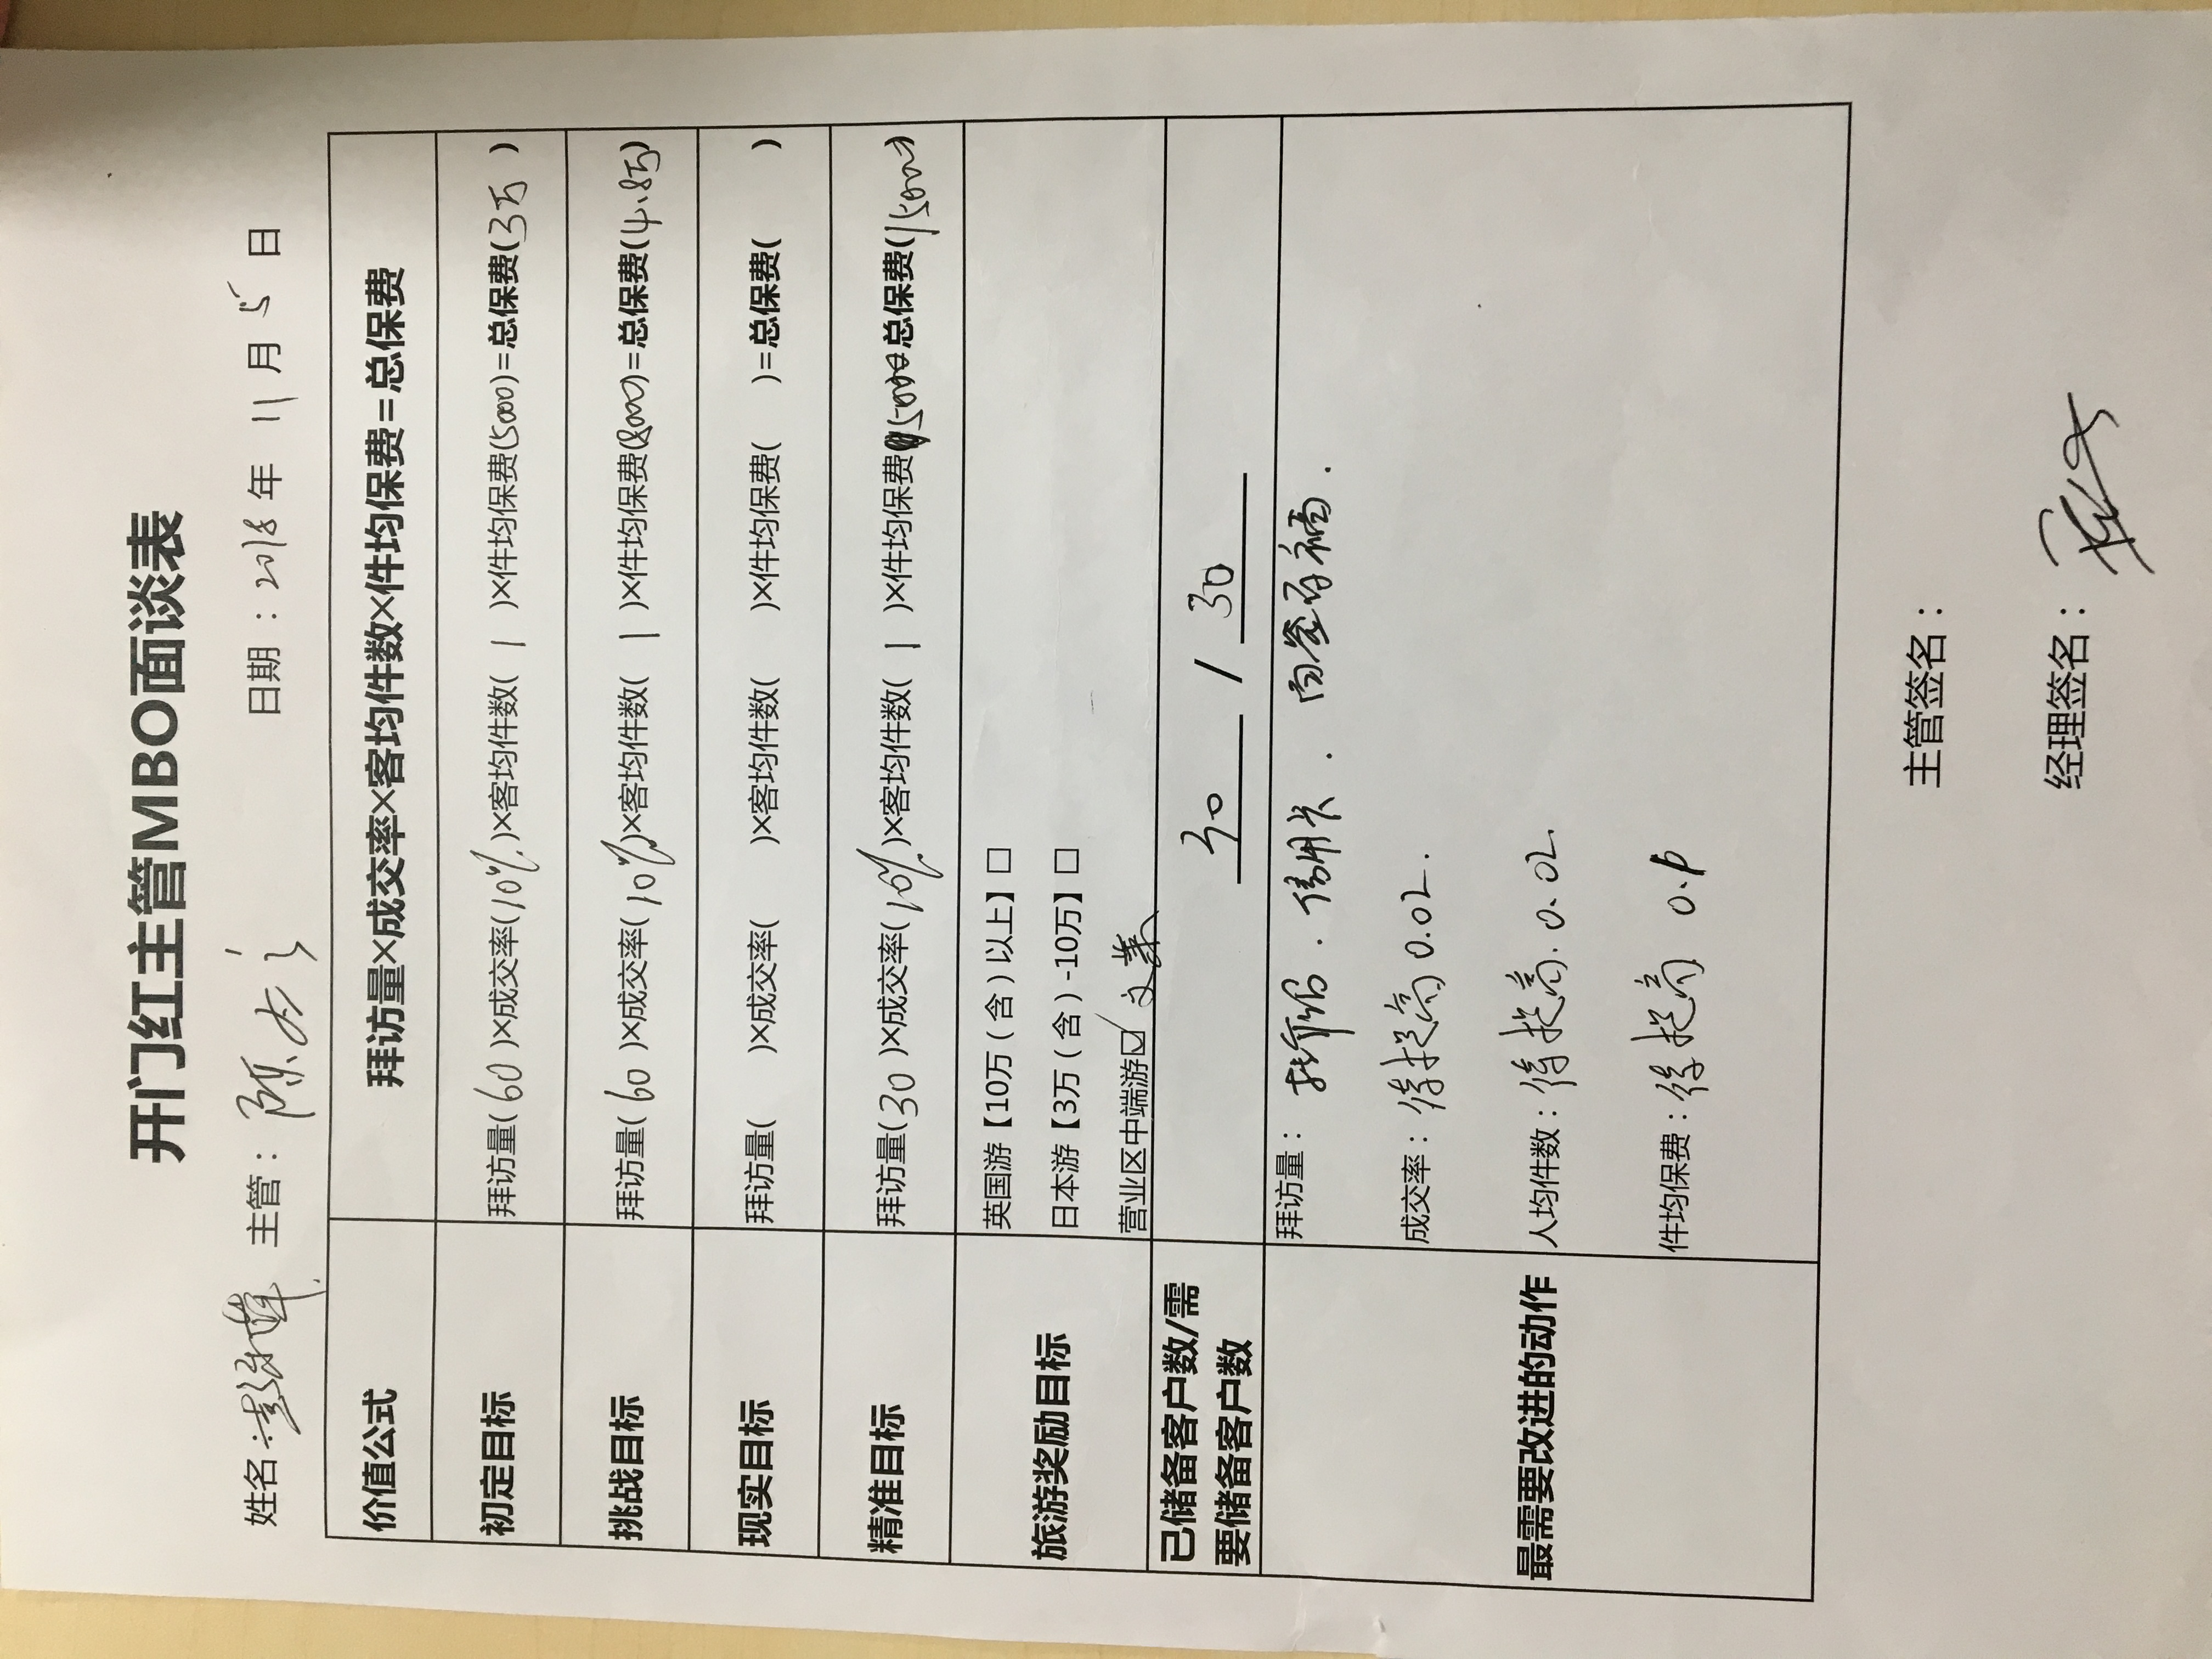 开门红主管MBO面谈表
姓名： 主管：陈 日期：2018年11月5日
价值公式 拜访量×成交率×客均件数×件均保费=总保费
初定目标 拜访量(60)×成交率(10%)×客均件数(1)×件均保费(5000)=总保费(3万)
挑战目标 拜访量(60)×成交率(10%)×客均件数(1)×件均保费(8000)=总保费(4.8万)
现实目标 拜访量( )×成交率( )×客均件数( )×件均保费( )=总保费( )
精准目标 拜访量(30)×成交率(10%)×客均件数(1)×件均保费(5000=总保费(15000)
旅游奖励目标
英国游【10万(含)以上】□
日本游【3万(含)-10万】□
营业区中端游☑
已储备客户数/需
要储备客户数
30 / 30
最需要改进的动作
拜访量：
成交率：待提高0.02.
人均件数：待提高.0.02.
件均保费：待提高
主管签名：
经理签名：